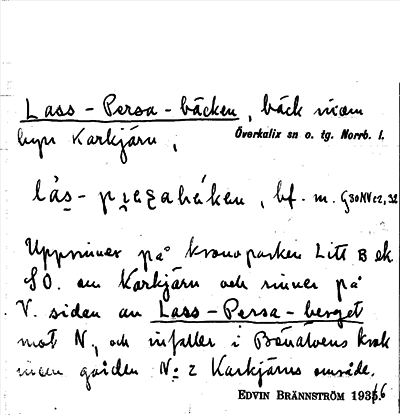 Lass-Persa-bäcken, bäck inom
byn Karkjärn, Överkalix sn o. tg. Norrb. l.
lás-
bf. m. G30NVc2,32
Upprinner på kronoparken Litt B ek
SO. om Karkjärn och rinner på
V. sidan av Lass-Persa-berget
mot N., och infaller i Bönälvens krok
inom gården No 2 Karkjärns område.
EDVIN BRÄNNSTRÖM 1936